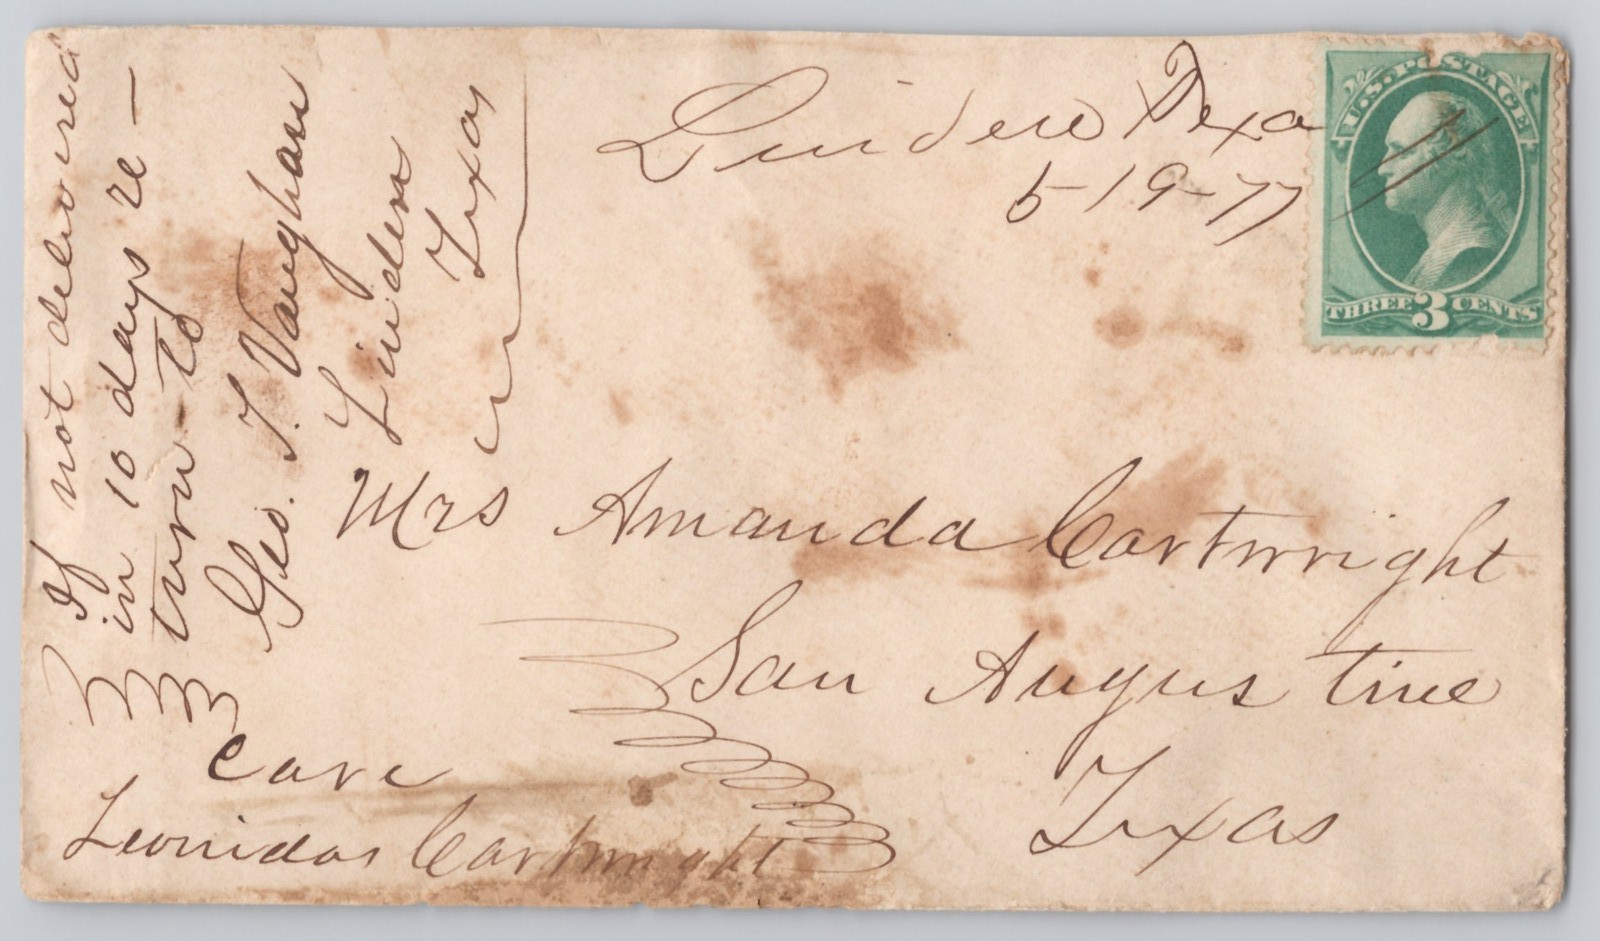 If not delivered
in 10 days re-
turn to
Geo. T. Vaughan
Linden
Texas
Linden Texa
5-19-77
U.S. POSTAGE
THREE 3 CENTS
Mrs Amanda Cartwright
San Augustine
Texas
care
Leonidas Cartwright